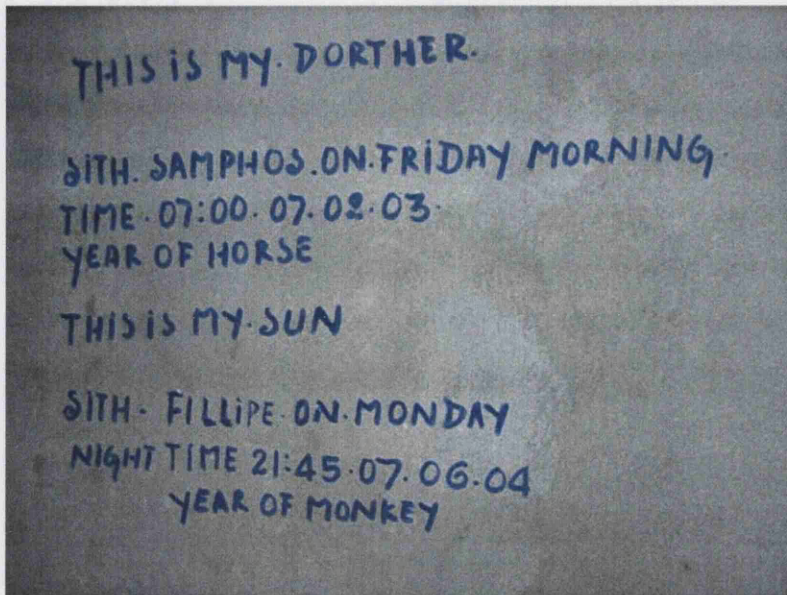 THIS iS MY. DORTHER.
SITH. SAMPHOS. ON. FRiDAY MORNING.
TIME. 07:00. 07. 02. 03.
YEAR OF HORSE
THIS iS MY. SUN
SITH. FILLiPE. ON. MONDAY
NIGHT TIME 21:45. 07. 06. 04
YEAR OF MONKEY